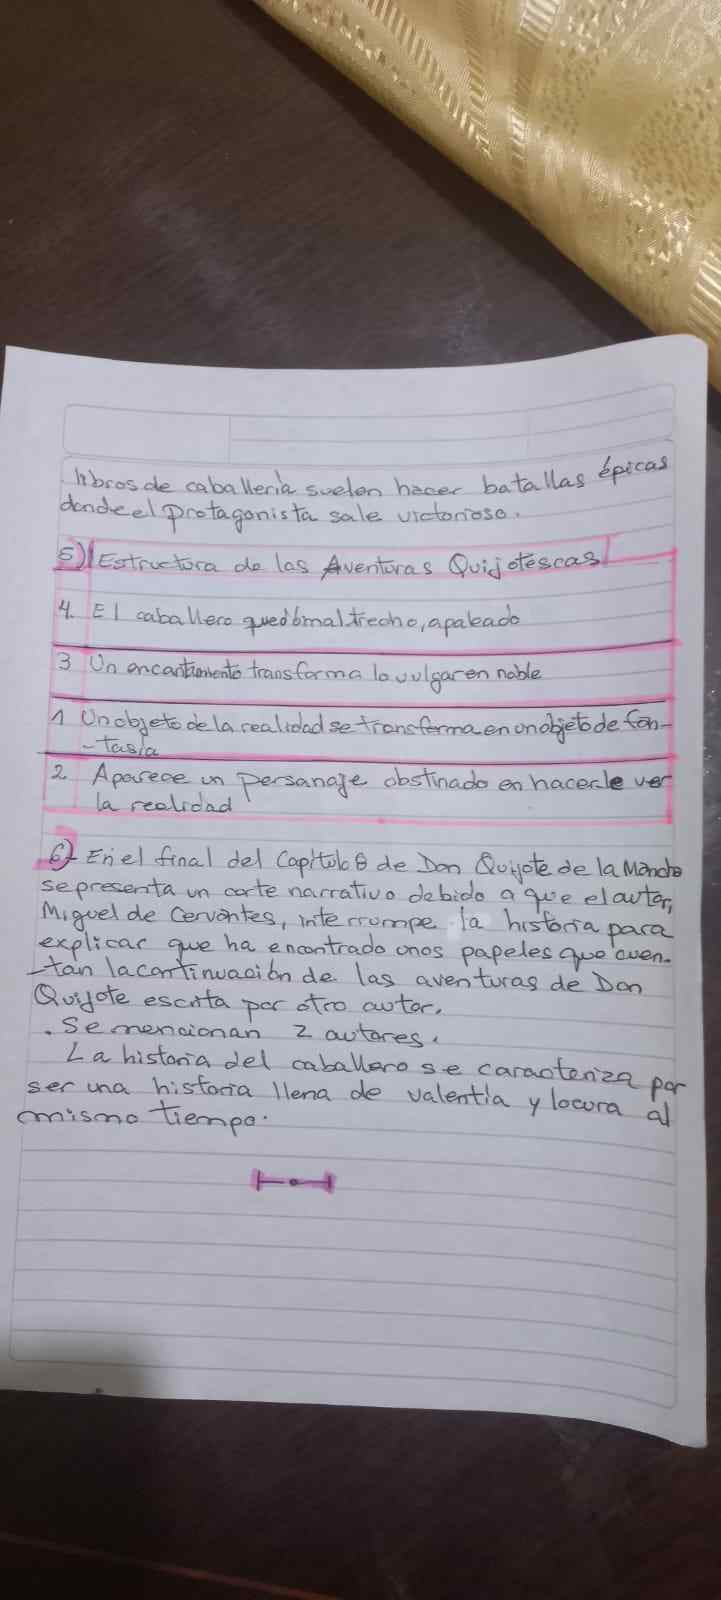 libros de caballería suelen hacer batallas épicas
donde el protagonista sale victorioso.
5) Estructura de las Aventuras Quijotescas
4. El caballero quedó maltrecho, apaleado
3 Un encantamiento transforma lo vulgar en noble
1 Un objeto de la realidad se transforma en un objeto de fan-
-tasía
2. Aparece un persanaje obstinado en hacerle ver
la realidad
6)- En el final del Capítulo 8 de Don Quijote de la Mancha
se presenta un corte narrativo debido a que el autor,
Miguel de Cervantes, interrumpe la historia para
explicar que ha encontrado unos papeles que cuen-
-tan la continuación de las aventuras de Don
Quijote escrita por otro autor.
. Se mencionan 2 autores.
La historia del caballero se caracteriza por
ser una historia llena de valentía y locura al
mismo tiempo.